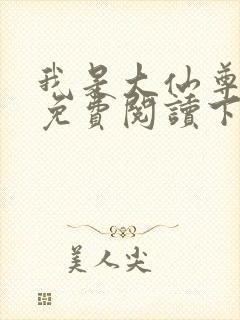 我是大仙尊
免費閱讀下
美人尖